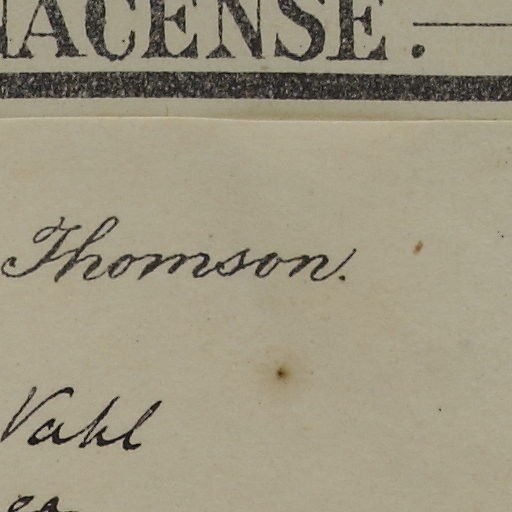 ACENSE.
Thomson.
Vahl